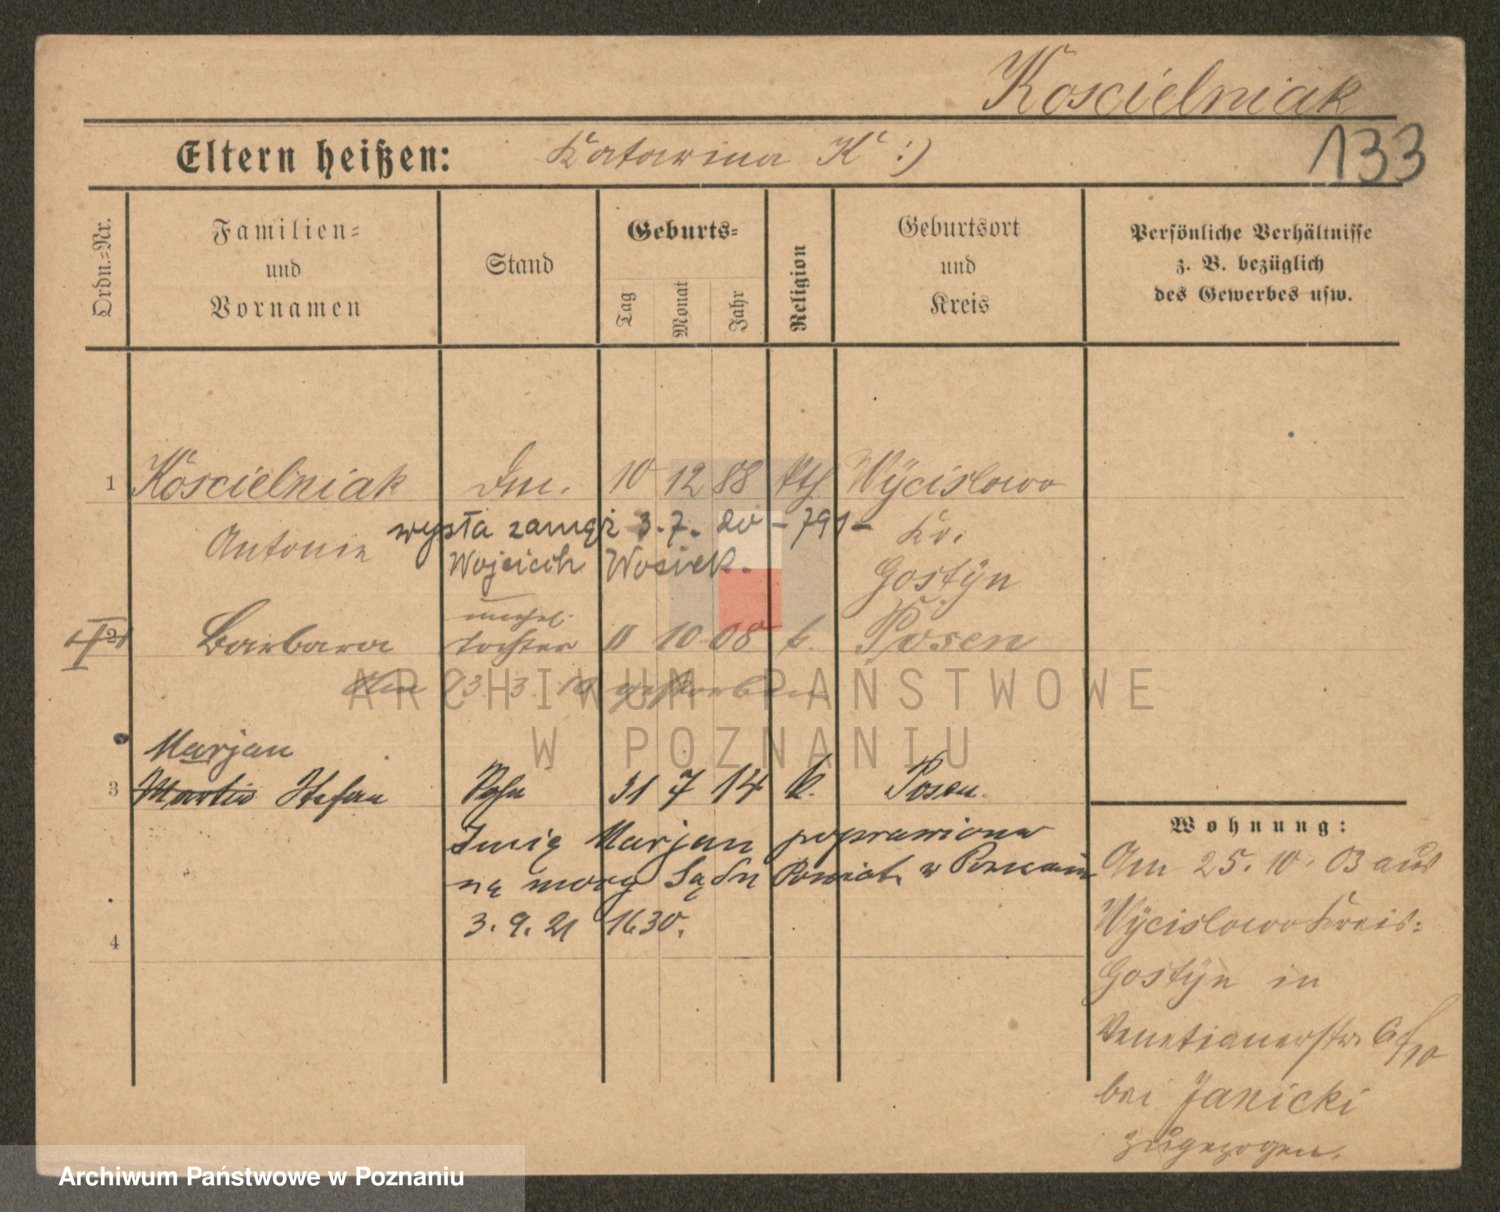 Koscielniak
133
Eltern heißen: Katarina K :)
Ordn.=Nr.
Familien=
und
Vornamen
Stand
Geburts=
Tag
Monat
Jahr
Religion
Geburtsort
und
Kreis
Persönliche Verhältnisse
z. B. bezüglich
des Gewerbes usw.
1 Koscielniak 10 12 88 kth Wycislowo
Antonie wyszła zamęż 3.7. 20 – 791 – Kr.
Wojciech Wosiek. Gostyn
unehel.
2 Barbara Tochter 11 10 08 k. Posen
Am 23. 3. 10 gestorben
Marjan
3 Martin Stefan Sohn 31 7 14 k. Posen.
Imię Marjan poprawiono
na mocy Sądu Powiat. w Poznaniu
3. 9. 21 1630.
4
Wohnung:
Am 25. 10. 03 aus
Wycislowo Kreis:
Gostyn in
Venetianerstr.
bei Janicki
zugezogen.
ARCHIWUM PAŃSTWOWE
W POZNANIU
Archiwum Państwowe w Poznaniu